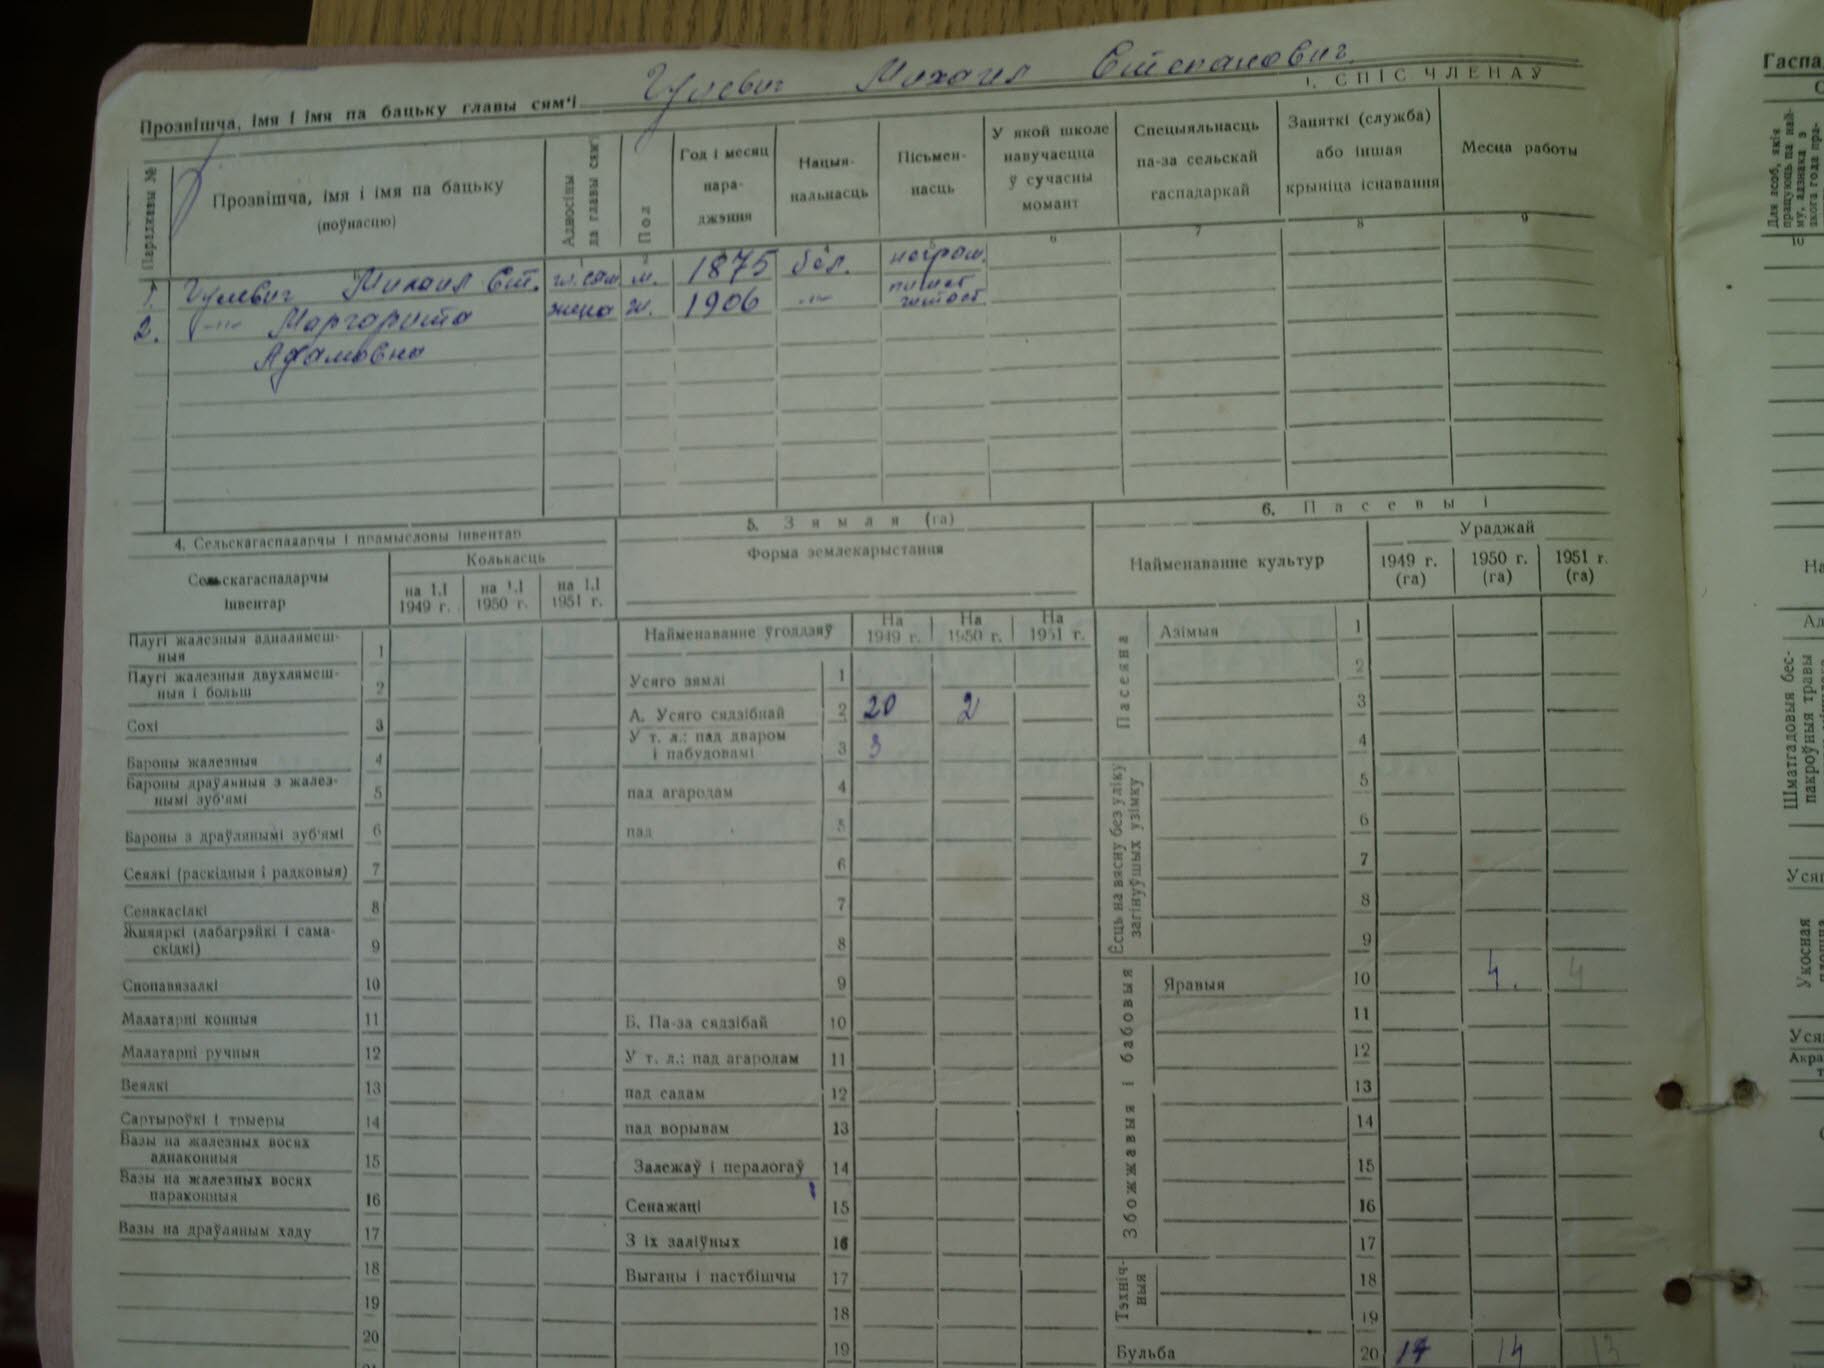 Прозвішча, імя і імя па бацьку главы сям'і Гулевич Михаил Степанович.
1. СПІС ЧЛЕНАЎ
Парадкавы №
Прозвішча, імя і імя па бацьку
(поўнасцю)
Адносіны да главы сям'і
Пол
Год і месяц нараджэння
Нацыянальнасць
Пісьменнасць
У якой школе навучаецца ў сучасны момант
Спецыяльнасць па-за сельскай гаспадаркай
Заняткі (служба) або іншая крыніца існавання
Месца работы
4 5 6 7 8 9
1. Гулевич Михаил Ст. гл. сем м. 1875 бел. неграм.
2. —"— Маргарита жена ж. 1906 —"—
Адамовна
4. Сельскагаспадарчы і прамысловы інвентар
Сельскагаспадарчы інвентар
Колькасць
на 1.I 1949 г.
на 1.I 1950 г.
на 1.I 1951 г.
Плугі жалезныя аднапямеш-
ныя 1
Плугі жалезныя двухлямеш-
ныя і больш 2
Сохі 3
Бароны жалезныя 4
Бароны драўляныя з жалез-
нымі зуб'ямі 5
Бароны з драўлянымі зуб'ямі 6
Сеялкі (раскідныя і радковыя) 7
Сенакасілкі 8
Жняяркі (лабагрэйкі і сама-
скідкі) 9
Снопавязалкі 10
Малатарні конныя 11
Малатарні ручныя 12
Веялкі 13
Сартыроўкі і трыеры 14
Вазы на жалезных восях
аднаконныя 15
Вазы на жалезных восях
параконныя 16
Вазы на драўляным хаду 17
18
19
20
5. Зямля (га)
Форма землекарыстання
Найменаванне ўгоддзяў
На 1949 г.
На 1950 г.
На 1951 г.
Усяго зямлі 1
А. Усяго сядзібнай 2 20 2
У т. л.: пад дваром
і пабудовамі 3 3
пад агародам 4
пад 5
6
7
8
9
Б. Па-за сядзібай 10
У т. л.: пад агародам 11
пад садам 12
пад ворывам 13
Залежаў і пералогаў 14
Сенажаці 15
З іх заліўных 16
Выганы і пастбішчы 17
18
19
6. Пасевы і
Найменаванне культур
Ураджай
1949 г. (га)
1950 г. (га)
1951 г. (га)
Пасеяна
Азімыя 1
2
3
4
Ёсць на вясну без уліку загінуўшых узімку
5
6
7
8
9
Збожжавыя і бабовыя
Яравыя 10 4. 4
11
12
13
14
15
16
17
Тэхніч-
ныя
18
19
Бульба 20 14 14 13
Гаспа
Для асоб, якія
10
Шматгадовыя бес-
пакроўныя травы
Укосная